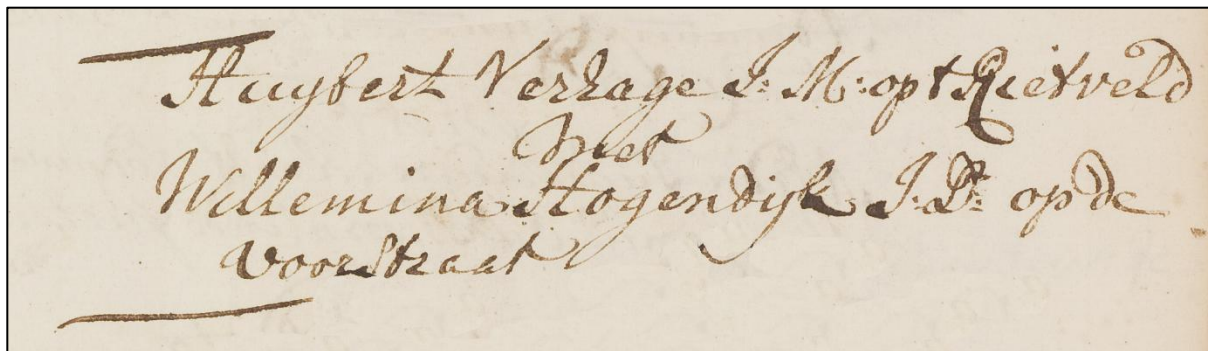 Huybert Verhage J: M: opt Rietveld
Met
Willemina Hogendijk J: D: op de
Voorstraat